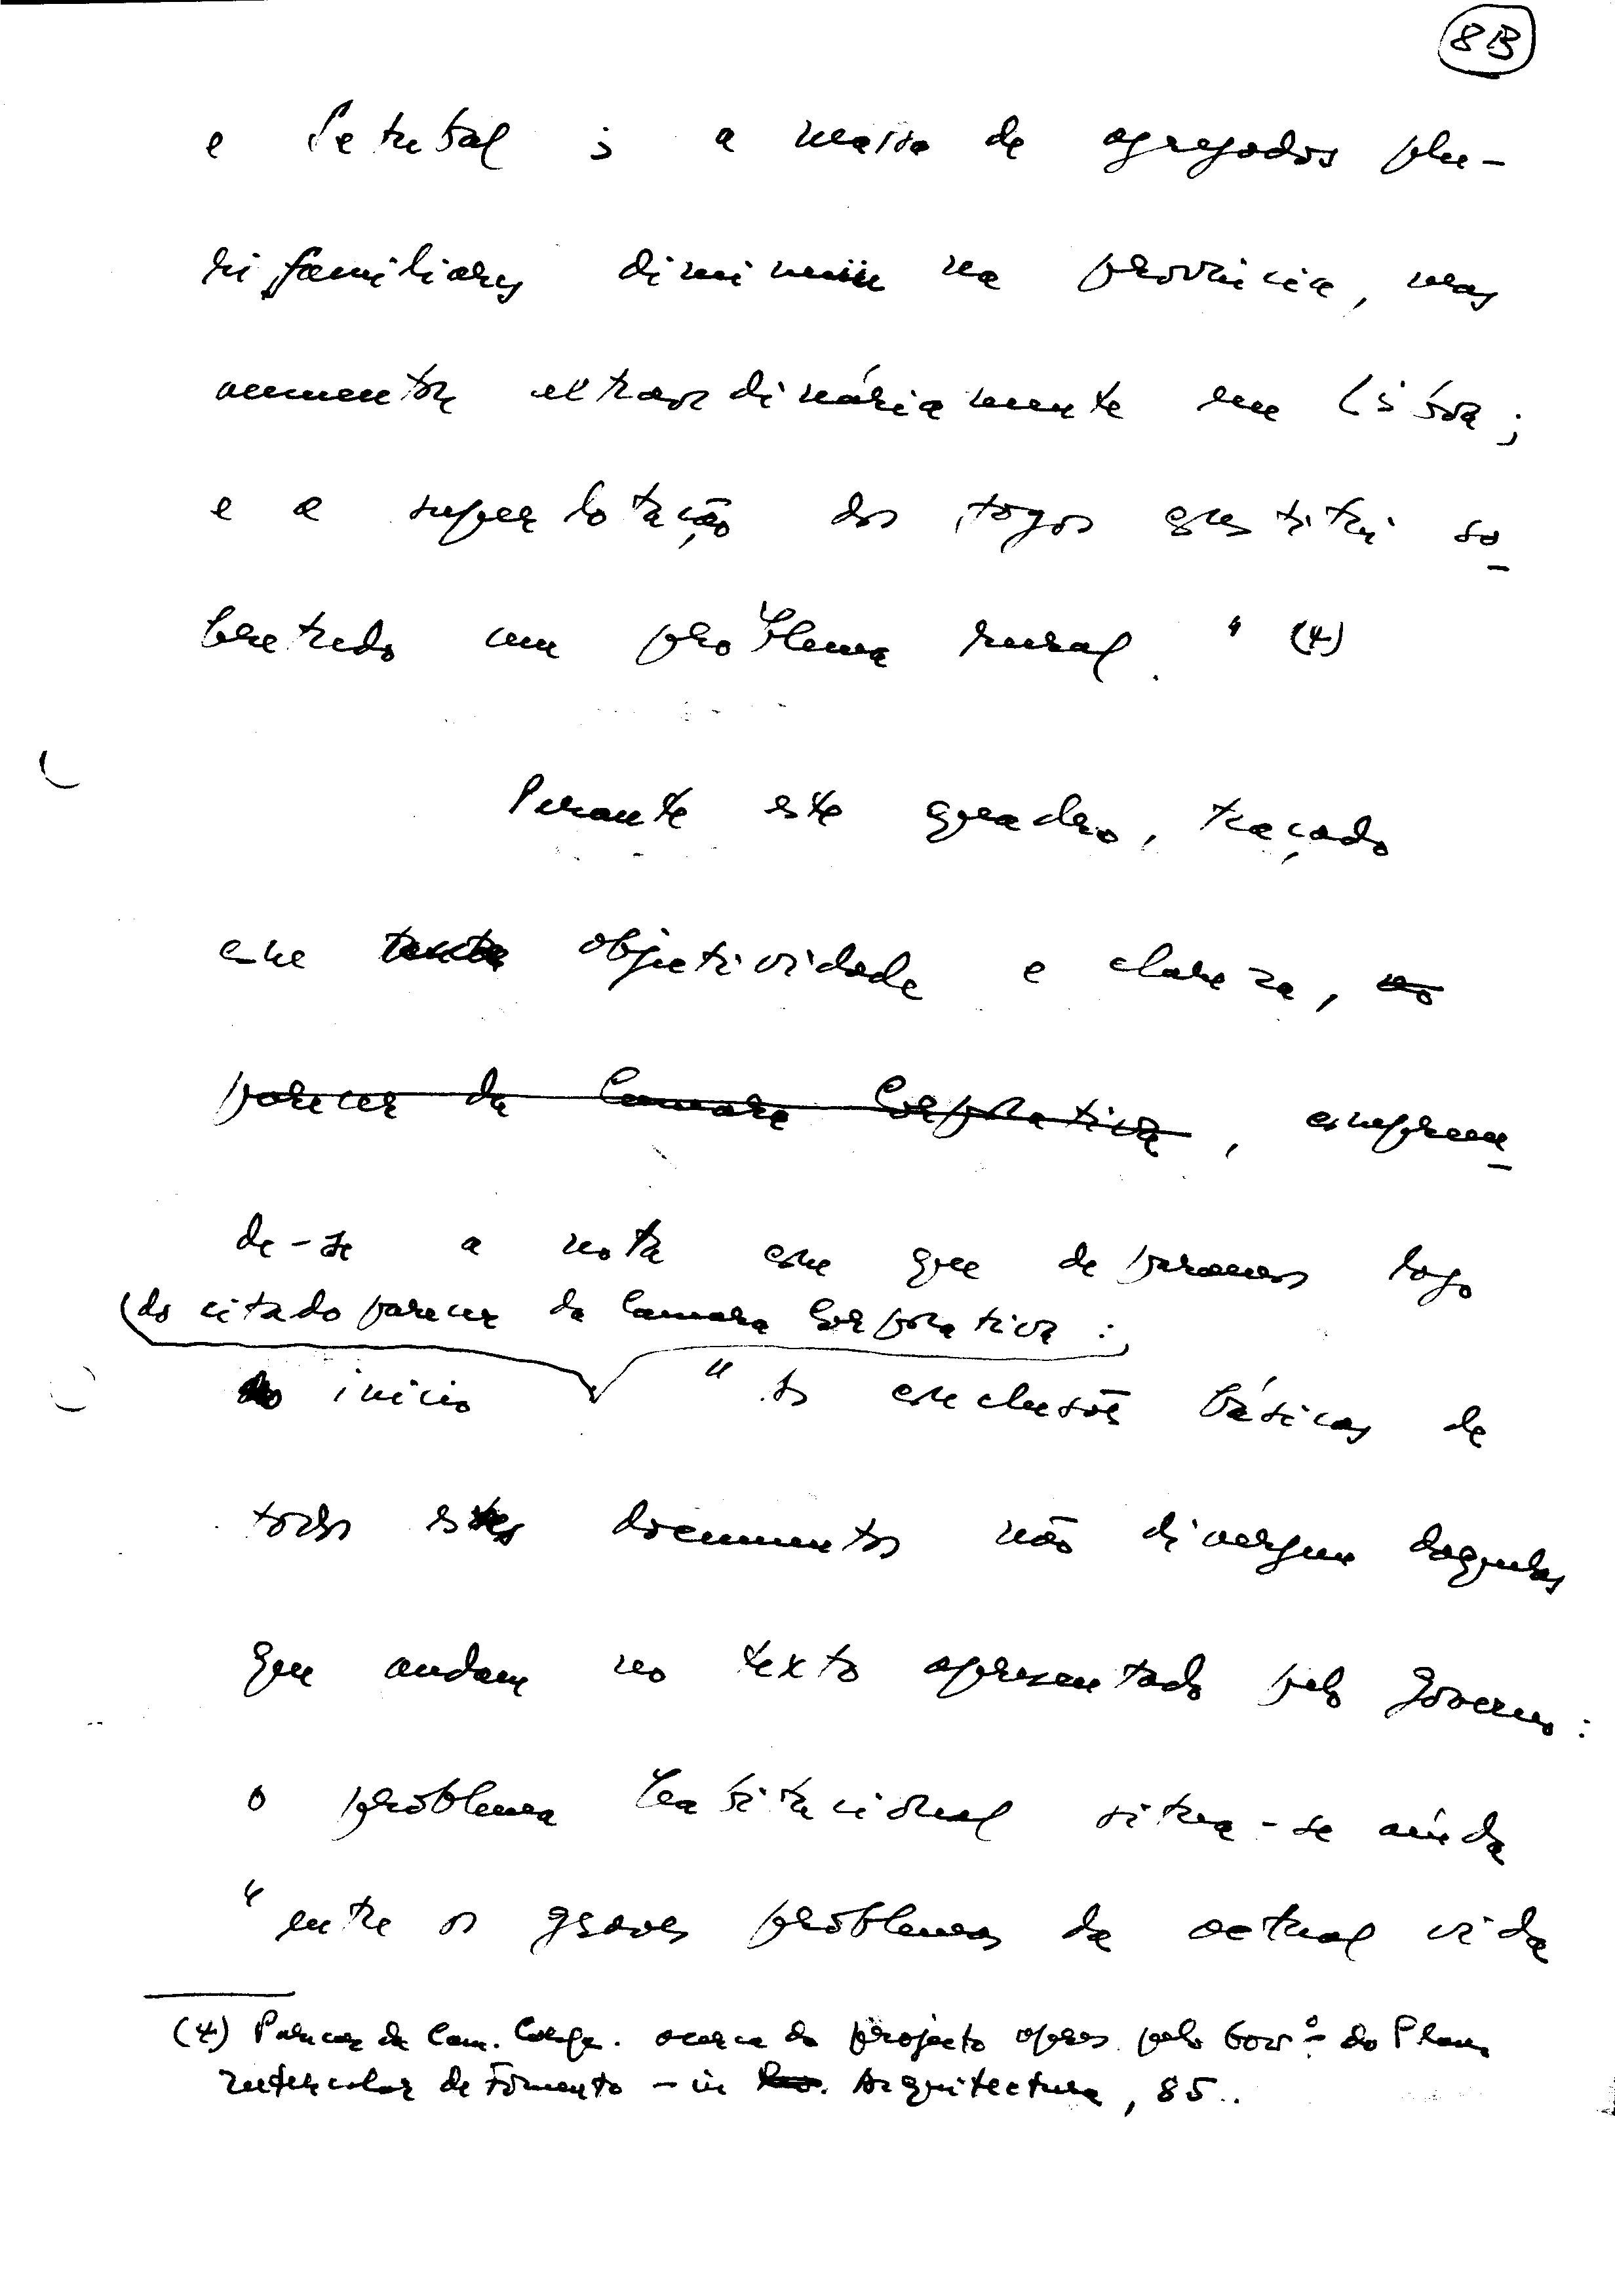 8B
e Setubal ; a massa de agregados plu-
rifamiliares diminuiu na província, mas
aumentou extraordináriamente em Lisboa ;
e a superlotação dos fogos constitui so-
bretudo um problema rural. " (4)
Perante este quadro, traçado
com tanta objectividade e clareza, no
parecer da Camara Corporativa, compreen-
de-se a nota com que deparamos logo
(do citado parecer da Camara Corporativa :
no início " As conclusões básicas de
todos estes documentos não divergem daquelas
que andam no texto apresentado pelo Governo :
o problema habitacional situa-se ainda
" entre os graves problemas da actual vida
(4) Parecer da Cam. Corp. acerca do projecto apres. pelo Govº do Plano
Intercalar de Fomento - in Arquitectura, 85..